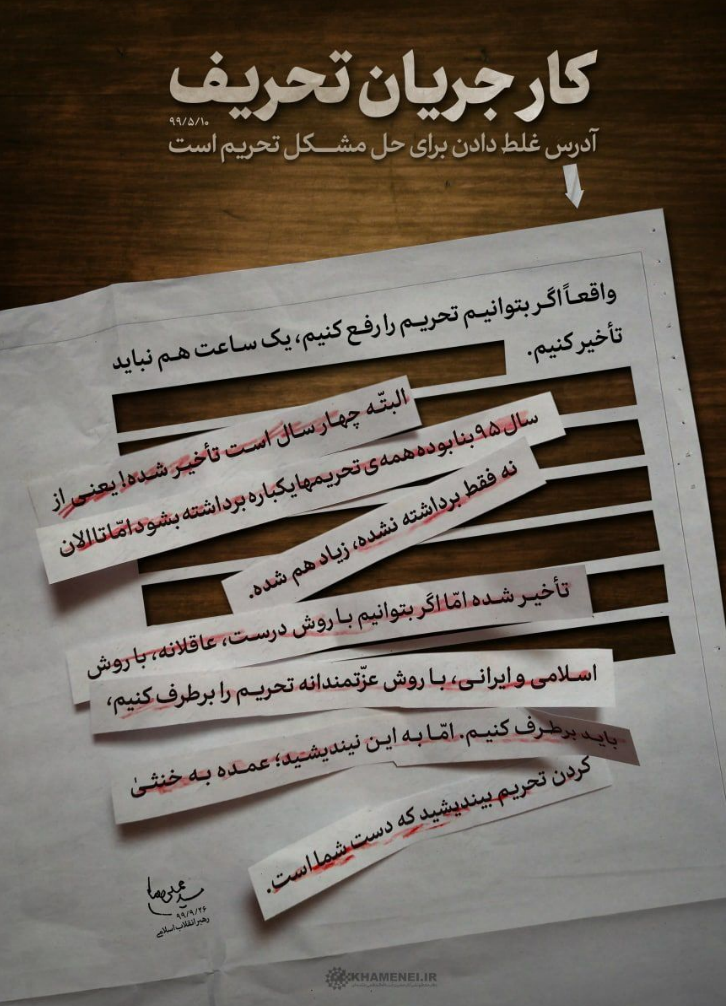 کار جریان تحریف
۹۹/۵/۱۰
آدرس غلط دادن برای حل مشکل تحریم است
واقعاً اگر بتوانیم تحریم را رفع کنیم، یک ساعت هم نباید
تأخیر کنیم.
البتّه چهار سال است تأخیر شده! یعنی از
سال ۹۵ بنا بوده همه‌ی تحریمها یکباره برداشته بشود امّا تا الان
نه فقط برداشته نشده، زیاد هم شده.
تأخیر شده امّا اگر بتوانیم با روش درست، عاقلانه، با روش
اسلامی و ایرانی، با روش عزّتمندانه تحریم را برطرف کنیم،
باید برطرف کنیم. امّا به این نیندیشید؛ عمده به خنثیٰ
کردن تحریم بیندیشید که دست شما است.
۹۹/۹/۲۶
رهبر انقلاب اسلامی
KHAMENEI.IR